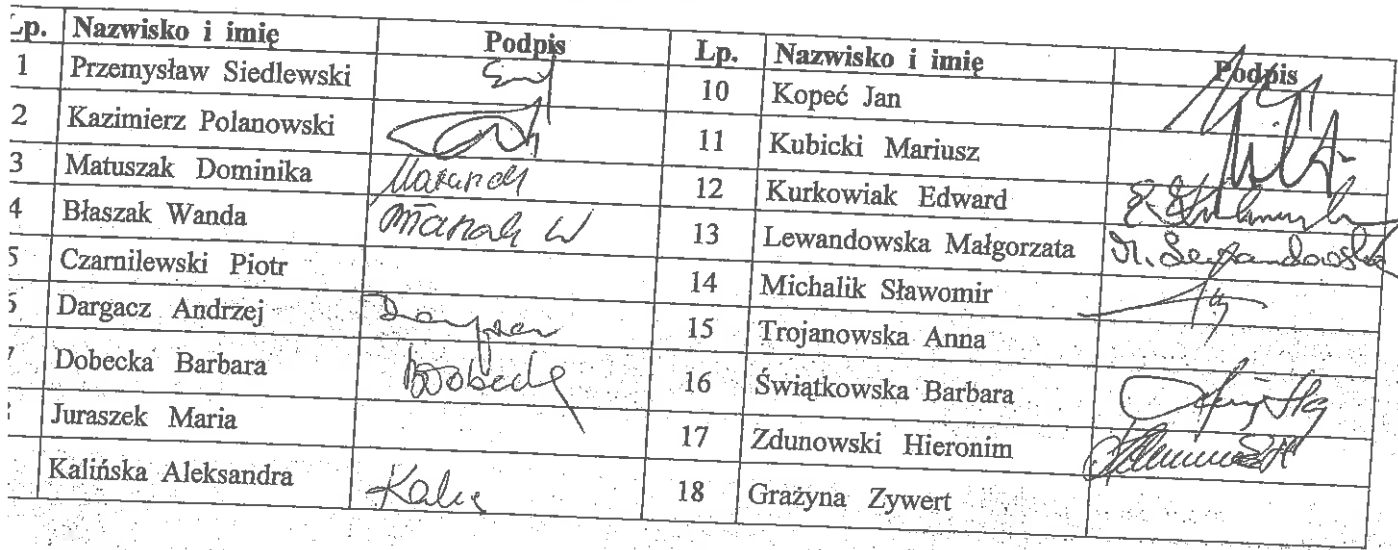 Lp. Nazwisko i imię Podpis Lp. Nazwisko i imię Podpis
1 Przemysław Siedlewski 10 Kopeć Jan
2 Kazimierz Polanowski 11 Kubicki Mariusz
3 Matuszak Dominika 12 Kurkowiak Edward
4 Błaszak Wanda 13 Lewandowska Małgorzata M. Lewandowska
5 Czarnilewski Piotr 14 Michalik Sławomir
Dargacz Andrzej 15 Trojanowska Anna
7 Dobecka Barbara BDobecka 16 Świątkowska Barbara
Juraszek Maria 17 Zdunowski Hieronim
Kalińska Aleksandra Kalis 18 Grażyna Zywert